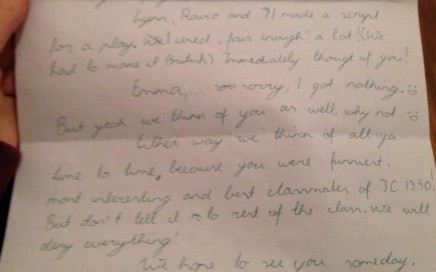 Lynn, Rawo and I made a script
for a play. We used "fair enough" a lot! (We
had to make it British) Immediately thougt of you!
Emma,... soo sorry, I got nothing. :(
But yeah we think of you as well, why not :)
Either way we think of all ya
time to time, because you were funniest,
most interesting and best classmates of JC 1350!
But don't tell it to rest of the class. We will
deny everything!
We hope to see you someday.